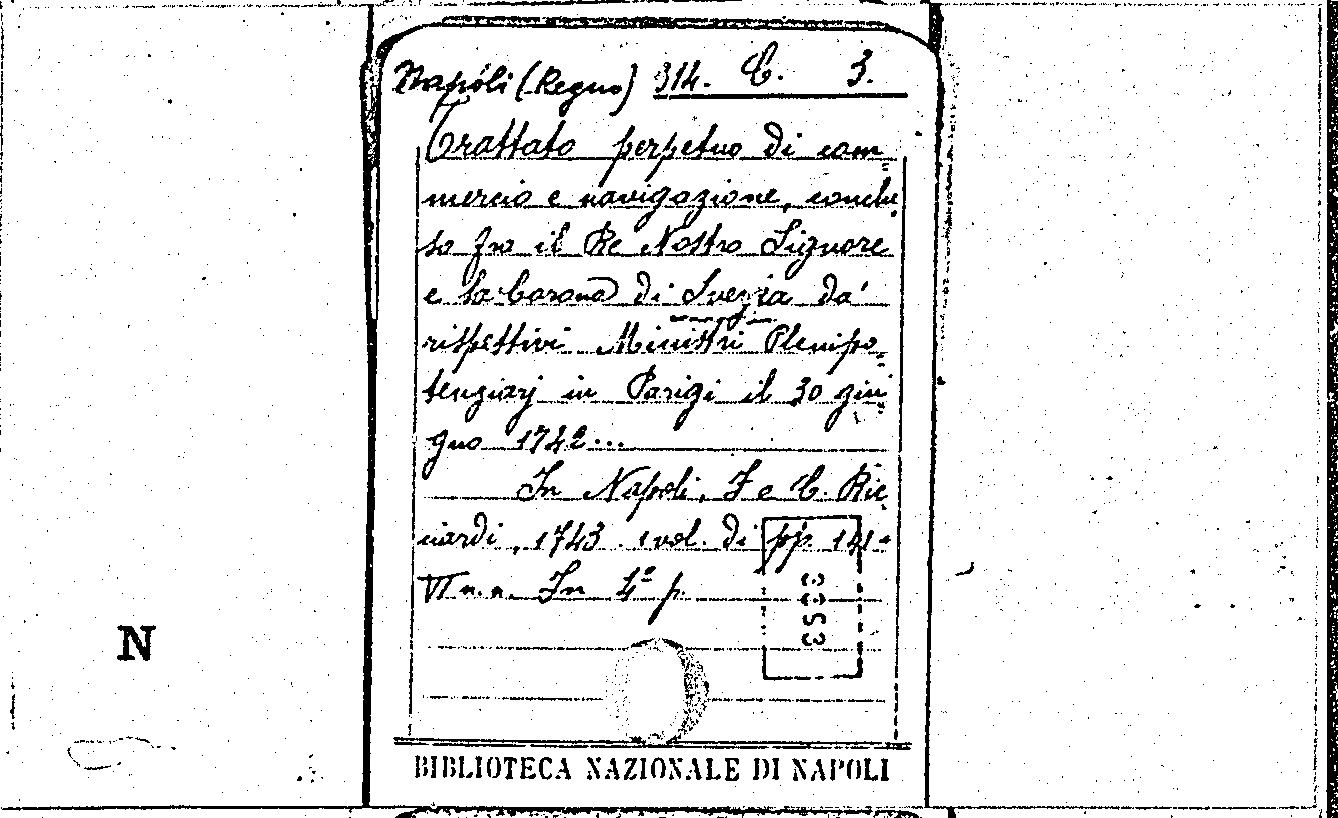 Napoli (Regno) 314. C. 3.
Trattato perpetuo di com
mercio e navigazione, conchiu
so fra il Re Nostro Signore
e la Corona di Svezia da'
rispettivi Ministri Plenipo=
tenziarj in Parigi il 30 giu=
gno 1742...
In Napoli, F e C. Ric
ciardi, 1743. 1 vol. di pp. 141-
VI n.n. In 4º p.
3353
N
BIBLIOTECA NAZIONALE DI NAPOLI